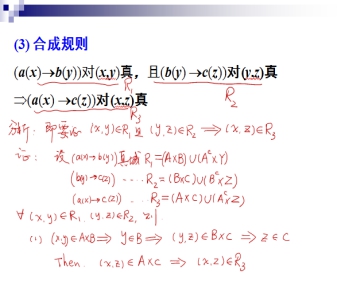 (3) 合成规则
(a(x)→b(y))对(x,y)真，且(b(y)→c(z))对(y,z)真
R₁ R₂
⇒(a(x)→c(z))对(x,z)真
R₃
分析：即要证 (x,y)∈R₁ 且 (y,z)∈R₂ ⟹ (x,z)∈R₃
证：设 (a(x)→b(y))真域 R₁=(A×B)∪(Aᶜ×Y)
(b(y)→c(z)) ···· R₂=(B×C)∪(Bᶜ×Z)
(a(x)→c(z)) ·· R₃=(A×C)∪(Aᶜ×Z)
∀ (x,y)∈R₁, (y,z)∈R₂,
(1) (x,y)∈A×B ⟹ y∈B ⟹ (y,z)∈B×C ⟹ z∈C
Then (x,z)∈A×C ⟹ (x,z)∈R₃